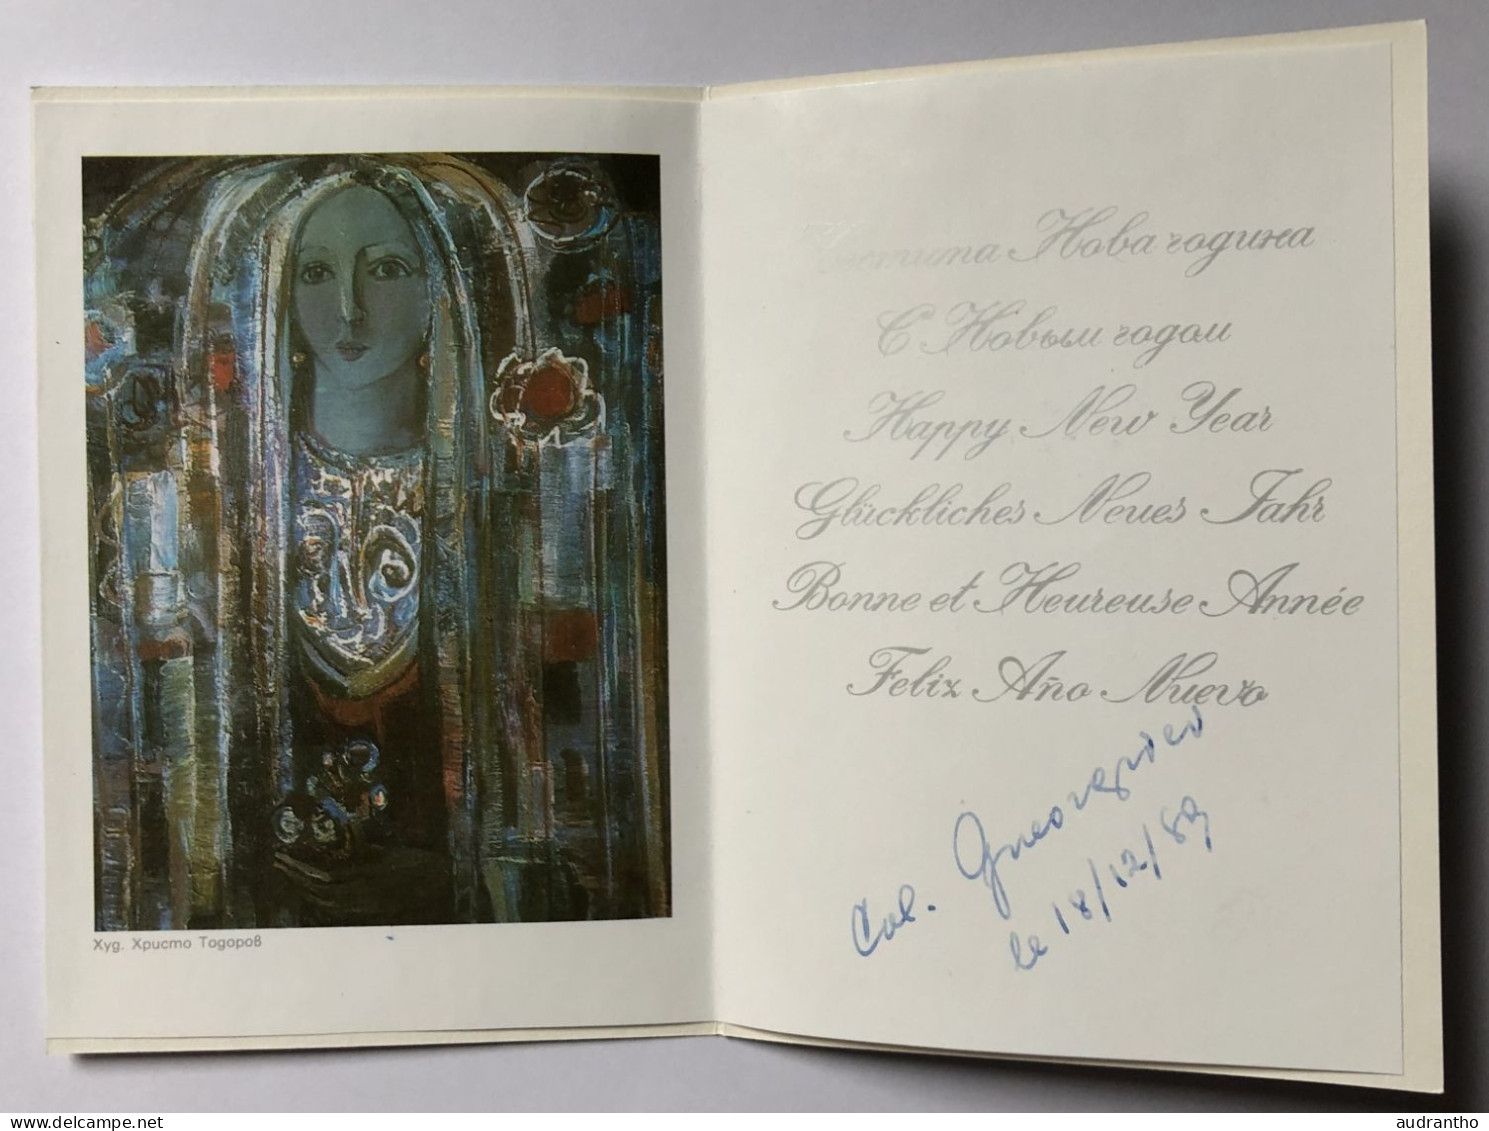 Худ. Христо Тодоров
Честита Нова година
С Новым годом
Happy New Year
Glückliches Neues Jahr
Bonne et Heureuse Année
Feliz Año Nuevo
Col.
le 18/12/89
delcampe.net
audrantho